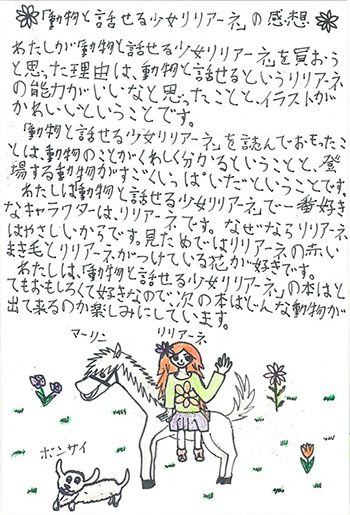 「動物と話せる少女リリアーネ」の感想
わたしが「動物と話せる少女リリアーネ」を買おう
と思った理由は、動物と話せるというリリアーネ
の能力がいいなと思ったことと、イラストが
かわいいということです。
「動物と話せる少女リリアーネ」を読んでおもったこ
とは、動物のことがくわしく分かるということと、登
場する動物がすごくいっぱいだということです。
わたしは「動物と話せる少女リリアーネ」で一番好き
なキャラクターは、リリアーネです。なぜならリリアーネ
はやさしいからです。見ためではリリアーネの赤い
まき毛とリリアーネがつけている花が好きです。
わたしは、「動物と話せる少女リリアーネ」の本はと
てもおもしろくて好きなので、次の本はどんな動物が
出て来るのか楽しみにしています。
マーリン
リリアーネ
ボンサイ